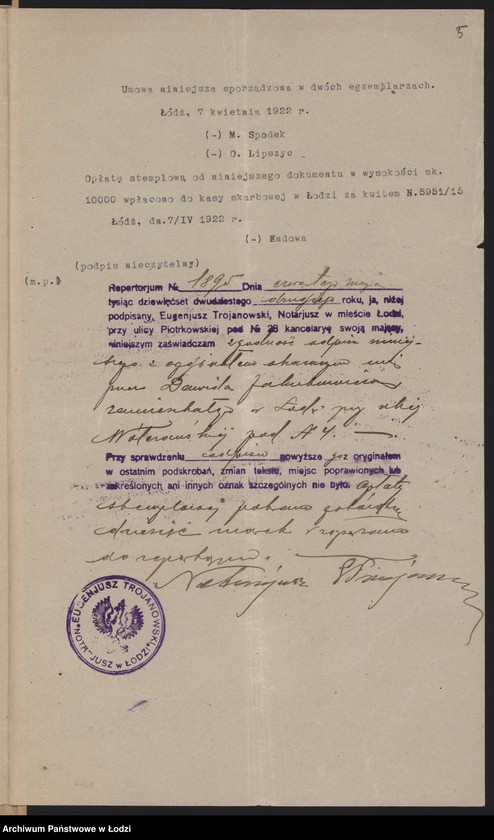 5
Umowa niniejsza sporządzona w dwóch egzemplarzach.
Łódź, 7 kwietnia 1922 r.
(-) M. Spodek
(-) O. Lipszyc
Opłatę stemplową od niniejszego dokumentu w wysokości mk.
10000 wpłacono do kasy skarbowej w Łodzi za kwitem N.5951/15
Łódź, da.7/IV 1922 r.
(-) Kadowa
(podpis nieczytelny)
(m.p.)
Repertorjum № 1895 Dnia czwartego maja
tysiąc dziewięćset dwudziestego drugiego roku, ja, niżej
podpisany, Eugenjusz Trojanowski, Notarjusz w mieście Łodzi,
przy ulicy Piotrkowskiej pod № 28 kancelaryę swoją mający,
niniejszym zaświadczam zgodność odpisu niniej-
szego z oryginałem okazanym mi
przez Dawida
zamieszkałego w Łodzi przy ulicy
pod № 4.
Przy sprawdzeniu odpisu powyższego z oryginałem
w ostatnim podskrobań, zmian tekstu, miejsc poprawionych lub
zakreślonych ani innych oznak szczególnych nie było. Opłatę
stemplową pobrano
dziesięć marek i wpisano
do repertorjum.
Notarjusz ETrojanowski
EUGENJUSZ TROJANOWSKI
NOTARJUSZ w ŁODZI
Archiwum Państwowe w Łodzi